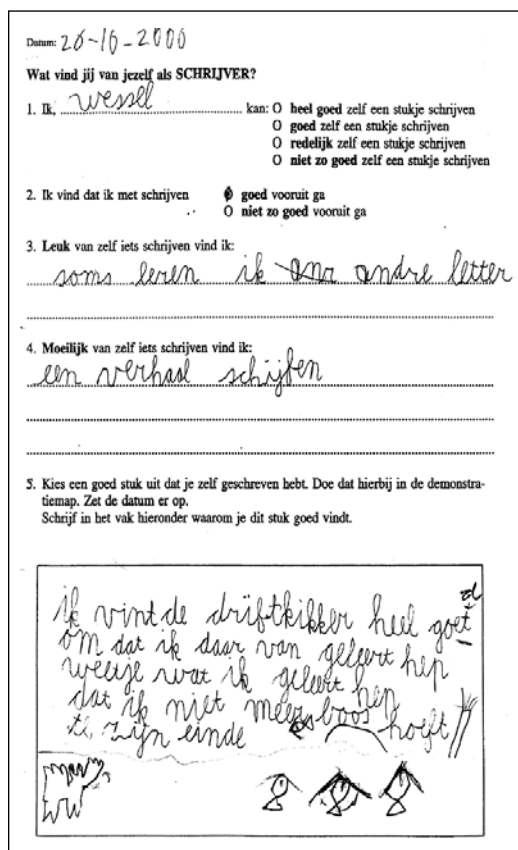 Datum: 26-10-2000
Wat vind jij van jezelf als SCHRIJVER?
1. Ik, wessel kan: O heel goed zelf een stukje schrijven
O goed zelf een stukje schrijven
O redelijk zelf een stukje schrijven
O niet zo goed zelf een stukje schrijven
2. Ik vind dat ik met schrijven O goed vooruit ga
O niet zo goed vooruit ga
3. Leuk van zelf iets schrijven vind ik:
soms leren ik andre letter
4. Moeilijk van zelf iets schrijven vind ik:
een verhaal schijfen
5. Kies een goed stuk uit dat je zelf geschreven hebt. Doe dat hierbij in de demonstra-
tiemap. Zet de datum er op.
Schrijf in het vak hieronder waarom je dit stuk goed vindt.
ik vint de driftkikker heel goet d
om dat ik daar van geleert hep
weetje wat ik geleert hep
dat ik niet meer boos hoeft
te zijn einde